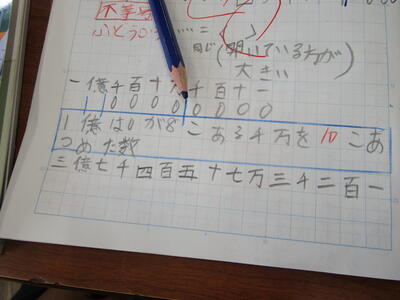 不等号
ふとうごう……=( )
同じ(開いている方が
大きい)
一億千百十万千百十一
1 1 0 0 0 0 0 0 0 0
1億は0が8こある千万を10こあ
つめた数
三億七千四百五十七万三千二百一